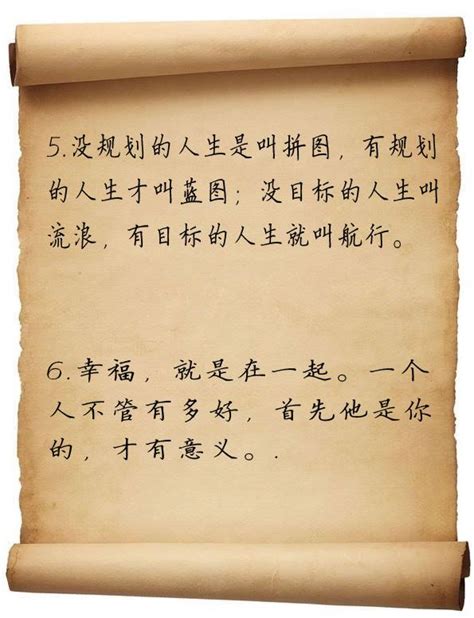 5.没规划的人生是叫拼图，有规划
的人生才叫蓝图；没目标的人生叫
流浪，有目标的人生就叫航行。
6.幸福，就是在一起。一个
人不管有多好，首先他是你
的，才有意义。.